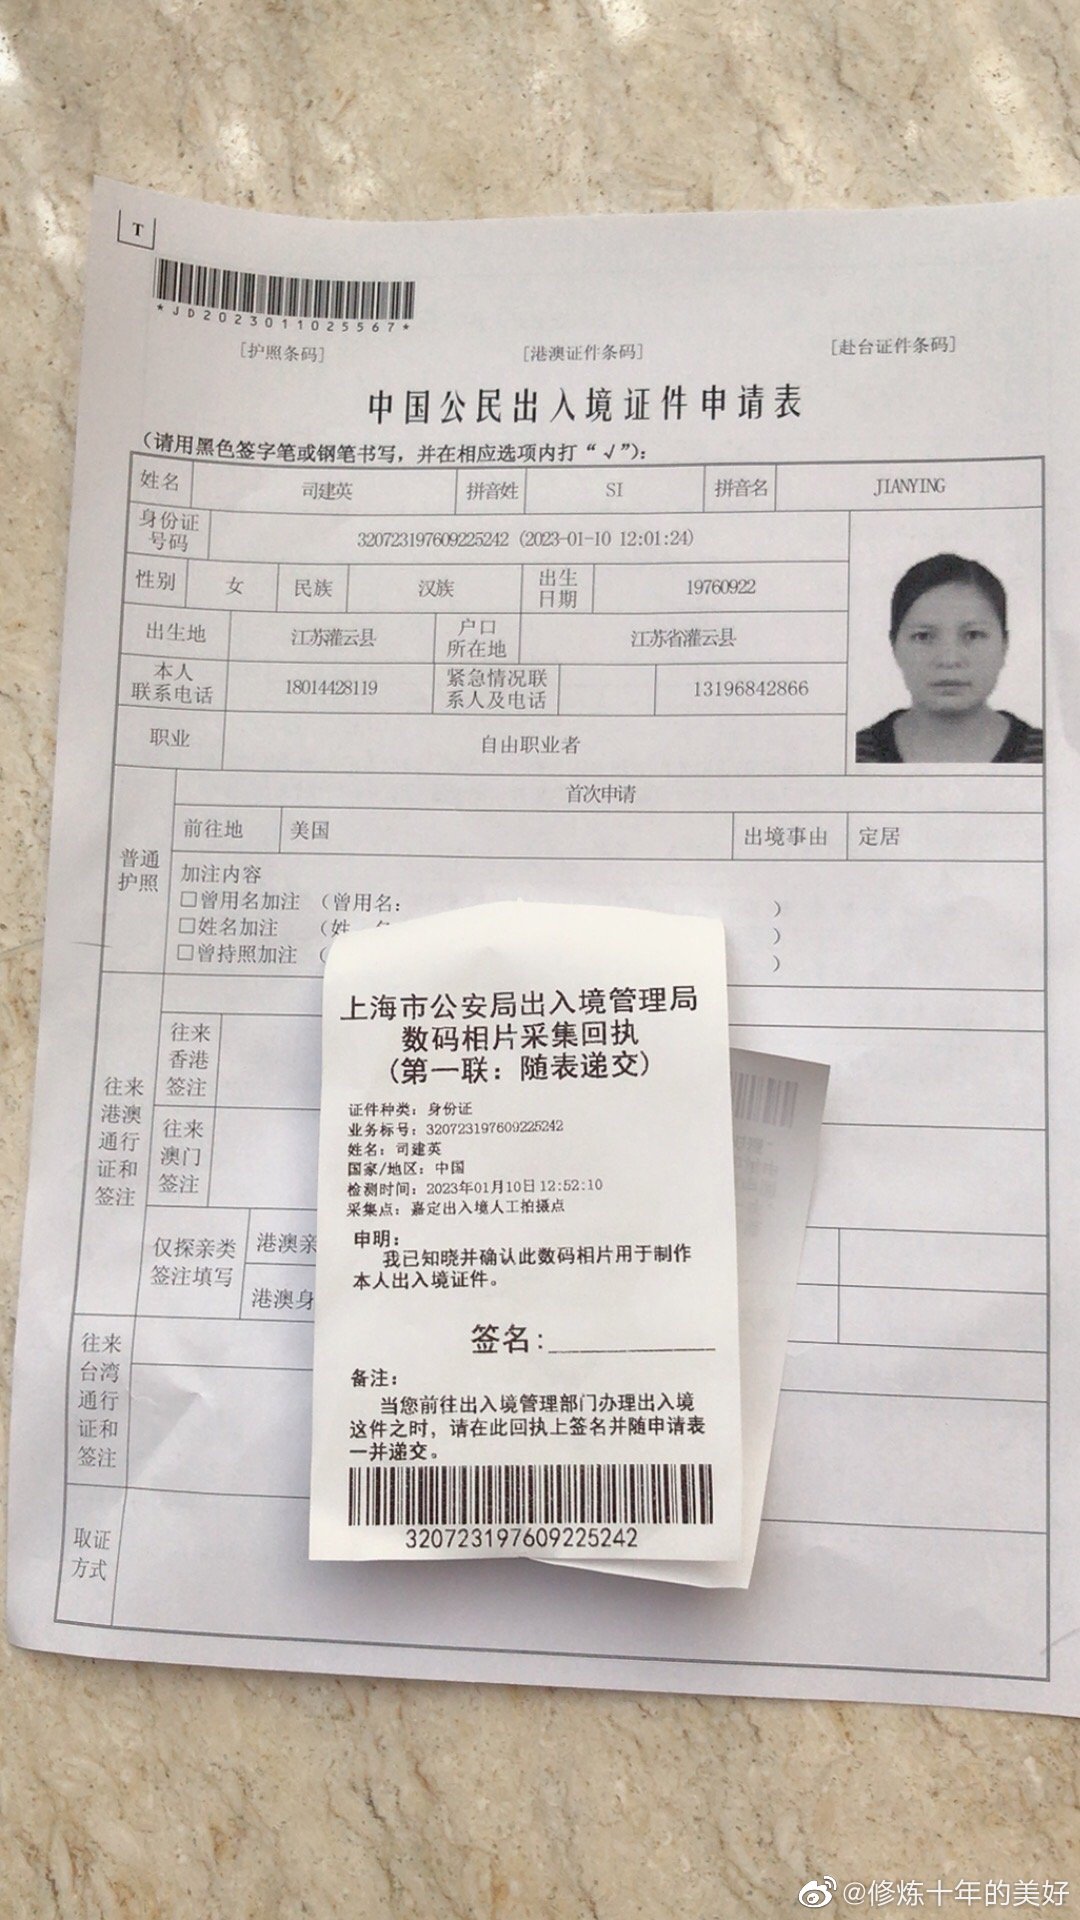 T
*JD2023011025567*
[护照条码] [港澳证件条码] [赴台证件条码]
中国公民出入境证件申请表
(请用黑色签字笔或钢笔书写，并在相应选项内打“√”)：
姓名 司建英 拼音姓 SI 拼音名 JIANYING
身份证号码 320723197609225242 (2023-01-10 12:01:24)
性别 女 民族 汉族 出生日期 19760922
出生地 江苏灌云县 户口所在地 江苏省灌云县
本人联系电话 18014428119 紧急情况联系人及电话 13196842866
职业 自由职业者
普通护照
首次申请
前往地 美国 出境事由 定居
加注内容
□曾用名加注 （曾用名： ）
□姓名加注 （姓 ）
□曾持照加注 （ ）
往来港澳通行证和签注
往来香港签注
往来澳门签注
仅探亲类签注填写
港澳亲
港澳身
往来台湾通行证和签注
取证方式
上海市公安局出入境管理局
数码相片采集回执
(第一联：随表递交)
证件种类：身份证
业务标号：320723197609225242
姓名：司建英
国家/地区：中国
检测时间：2023年01月10日12:52:10
采集点：嘉定出入境人工拍摄点
申明：
我已知晓并确认此数码相片用于制作
本人出入境证件。
签名：
备注：
当您前往出入境管理部门办理出入境
这件之时，请在此回执上签名并随申请表
一并递交。
320723197609225242
@修炼十年的美好